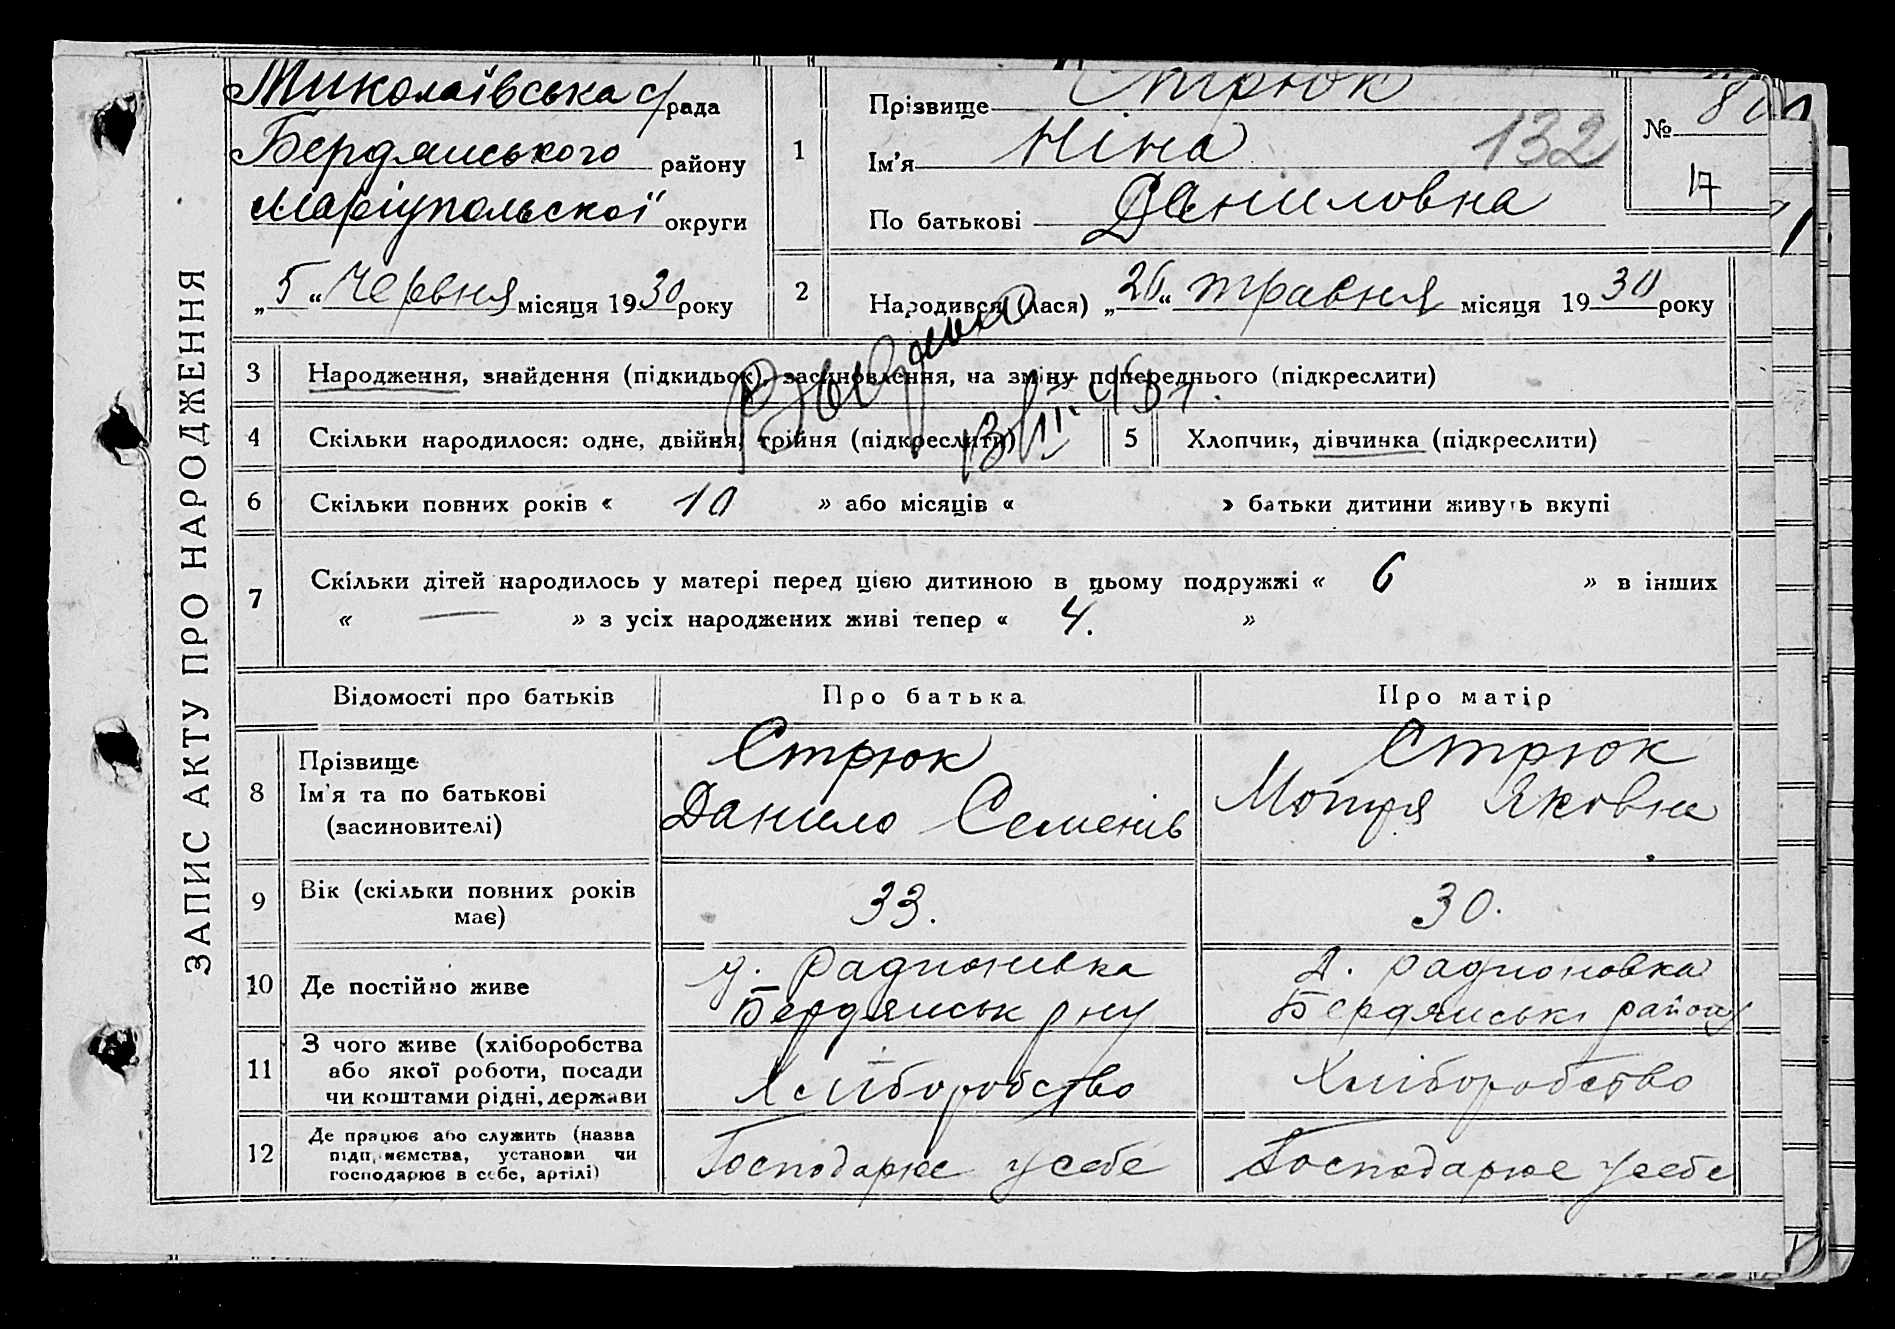 ЗАПИС АКТУ ПРО НАРОДЖЕННЯ
Миколаївська с/рада
Бердянського району
Маріупольскої округи
„5“ Червня місяця 1930 року
1
Прізвище Стрюк
Ім’я Ніна
132
По батькові Даниловна
№ 80
17
2
Народився (лася) „26“ травня місяця 1930 року
3 Народження, знайдення (підкидьок), засиновлення, на зміну попереднього (підкреслити)
4 Скільки народилося: одне, двійня, трійня (підкреслити)
5 Хлопчик, дівчинка (підкреслити)
6 Скільки повних років « 10 » або місяців « » батьки дитини живуть вкупі
7 Скільки дітей народилось у матері перед цією дитиною в цьому подружжі « 6 » в інших
« — » з усіх народжених живі тепер « 4. »
Відомості про батьків
Про батька
Про матір
8 Прізвище
Ім’я та по батькові
(засиновителі)
Стрюк
Данило Семенів
Стрюк
Мотря Яковна
9 Вік (скільки повних років
має)
33.
30.
10 Де постійно живе
Радионивка
Бердянськ рну
д. Радионовка
Бердянськ району
11 З чого живе (хліборобства
або якої роботи, посади
чи коштами рідні, держави
Хліборобство
Хліборобство
12 Де працює або служить (назва
підприємства, установи чи
господарює в себе, артілі)
Господарює усебе
Господарює усебе